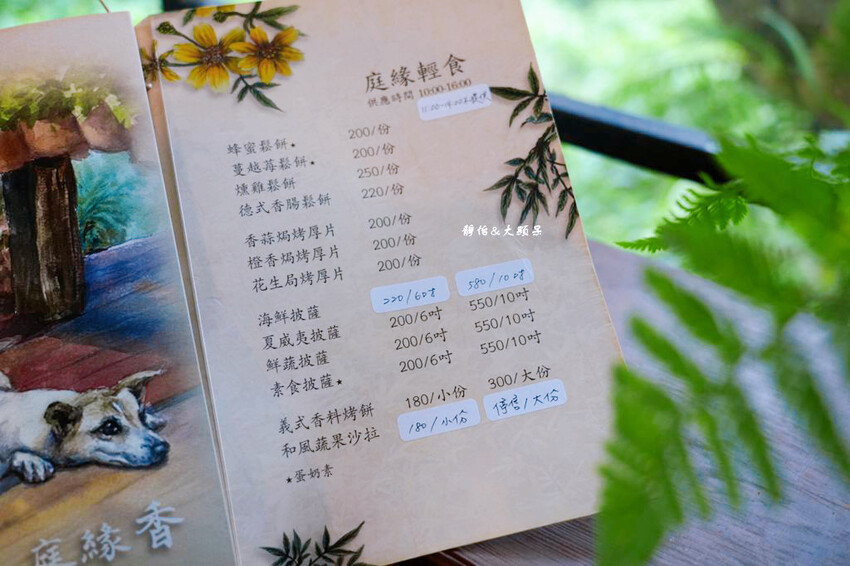 庭緣輕食
供應時間 10:00-16:00
蜂蜜鬆餅★ 200/份
蔓越莓鬆餅★ 200/份
燻雞鬆餅 250/份
德式香腸鬆餅 220/份
香蒜焗烤厚片 200/份
橙香焗烤厚片 200/份
花生局烤厚片 200/份
海鮮披薩 220/6吋 580/10吋
夏威夷披薩 200/6吋 550/10吋
鮮蔬披薩 200/6吋 550/10吋
素食披薩★ 200/6吋 550/10吋
義式香料烤餅 180/小份 300/大份
和風蔬果沙拉 180/小份 停售/大份
★蛋奶素
靜怡&大顆呆
庭緣香